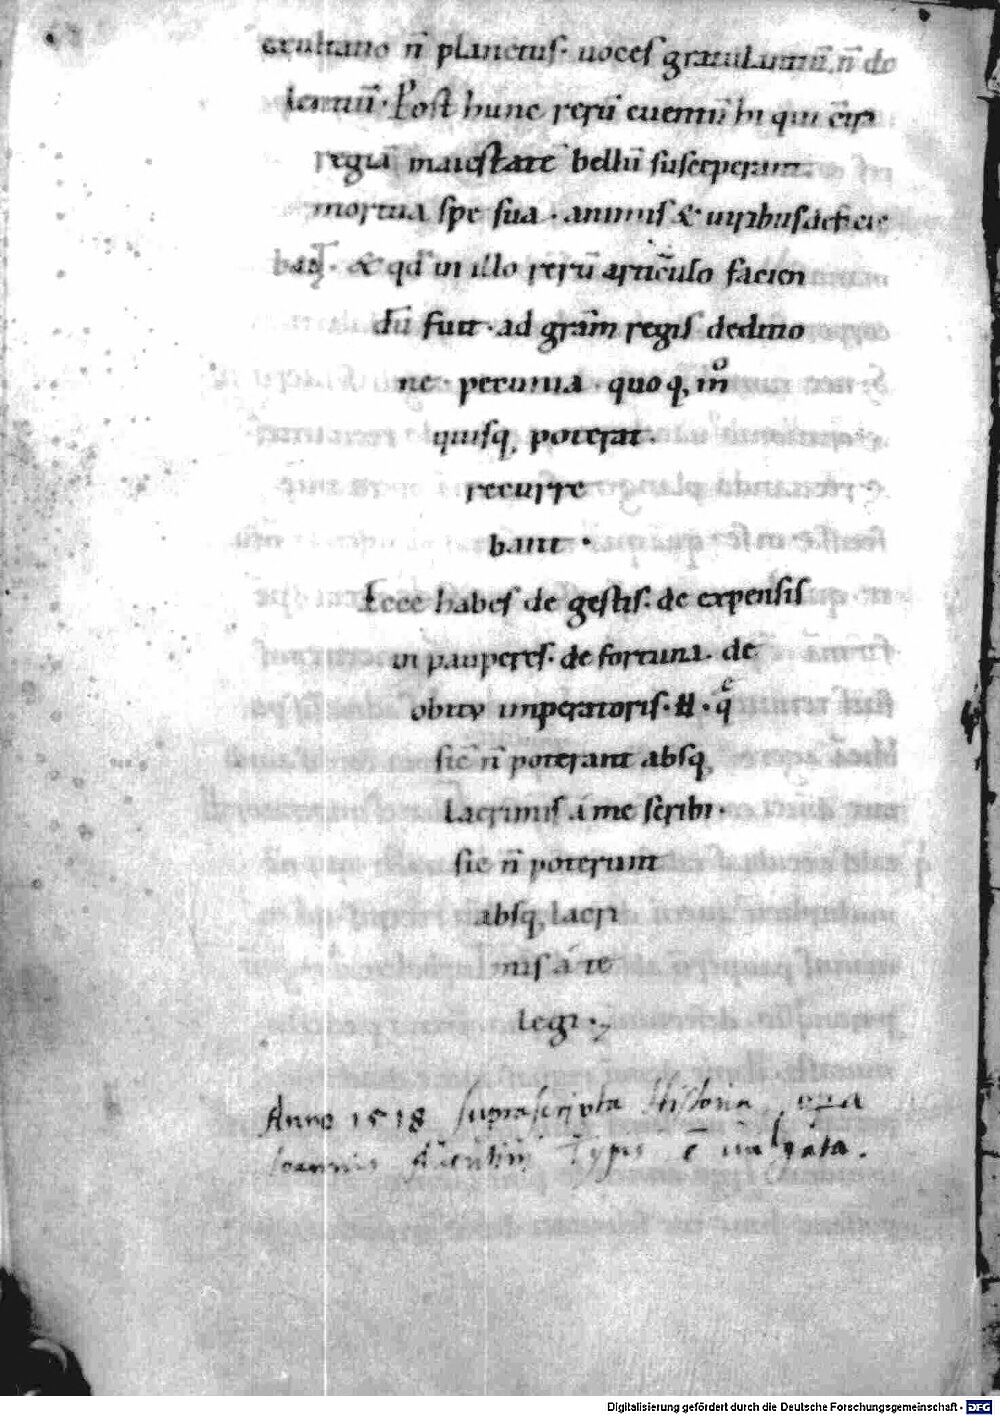 exultatio n̄ planctus· uoces gratulantiū. n̄ do
lentiū· Post hunc rerū euentū hi qui c̄tra
regiā maiestatē bellū susceperunt
mortua spe sua· animis & uiribus deficie
bant· & qd̄ in illo rerū articulo facien
dū fuit· ad grām regis deditio
ne· pecunia· quoq, m̊
quisq, poterat·
recurre
bant·
Ecce habes de gestis· de expensis
in pauperes· de fortuna· de
obitu imperatoris· H· q̄
sic n̄ poterant absq,
lacrimis á me scribi·
sic n̄ poterunt
absq, lacri
mis á te
legi·
Anno 1518 suprascripta Historia
Ioannis Auentini Typis ē
Digitalisierung gefördert durch die Deutsche Forschungsgemeinschaft - DFG